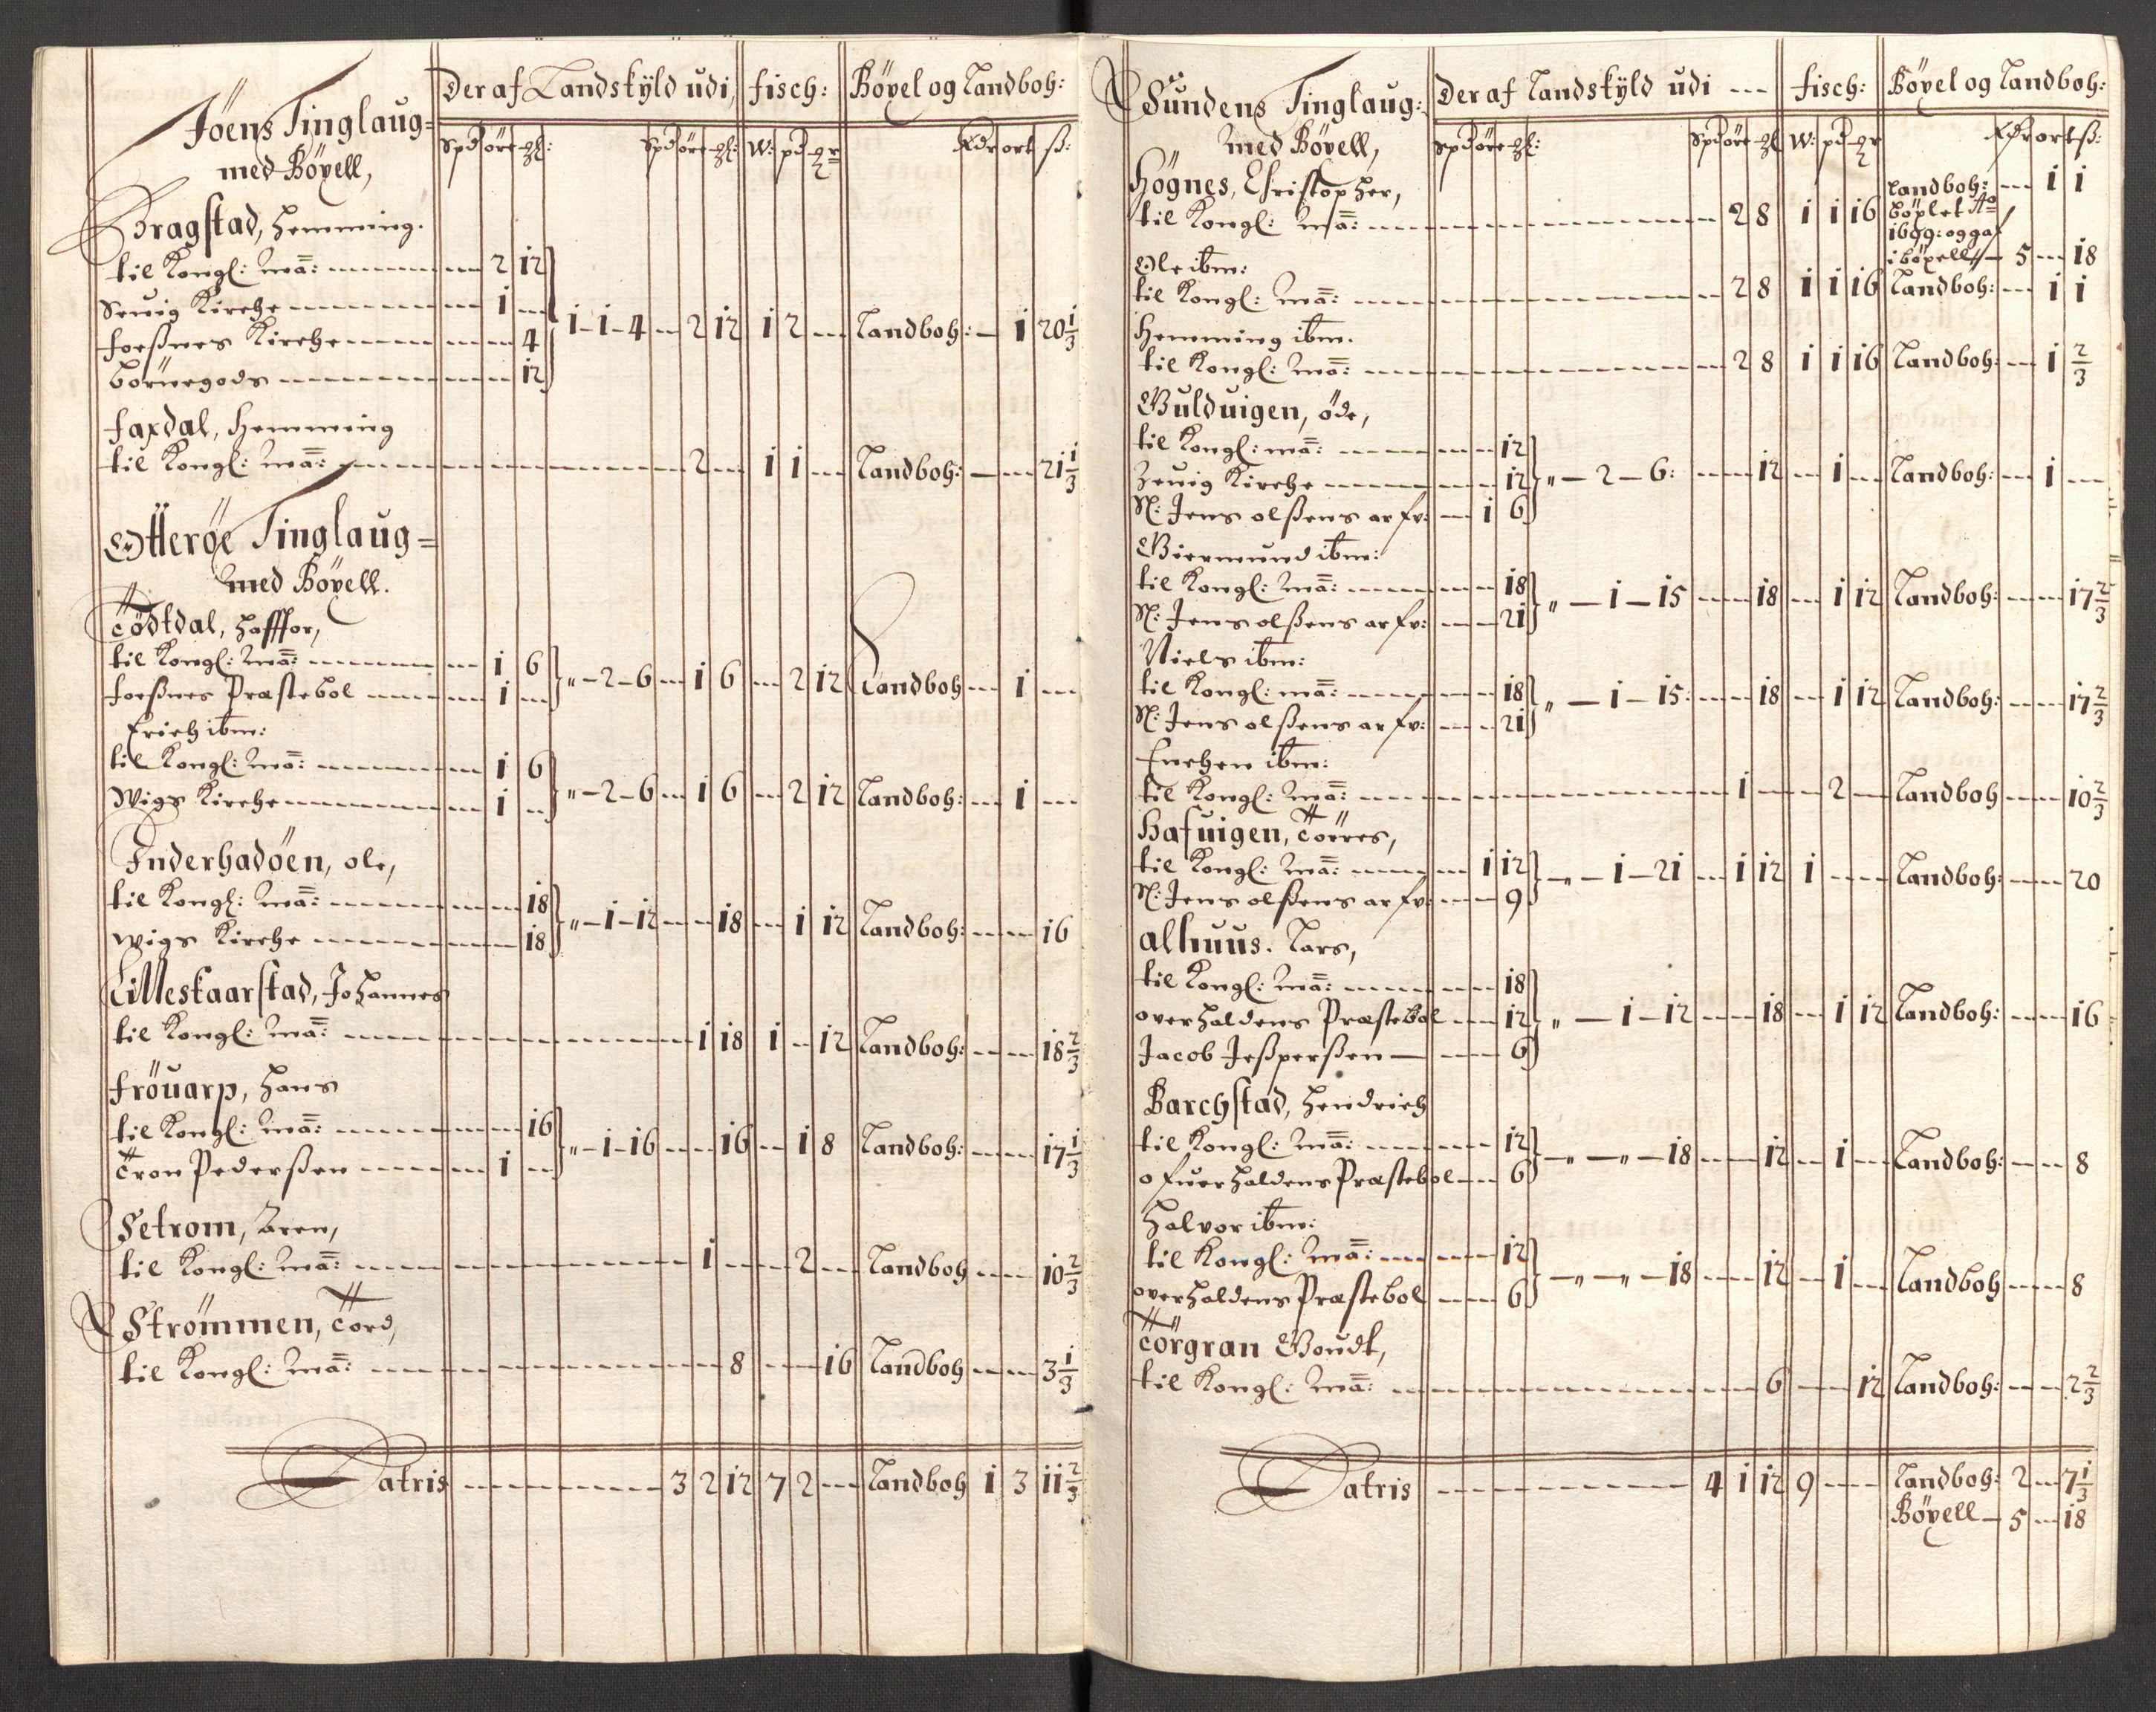 Jöens Tinglaug= Der af Landskyld udi, fisch: Böxel og Landboh:
med Böxell, Spd öre ₰l: Spd öre ₰l: W: pd ₰r Rdr ort ß:
Dragstad, Hemming.
til Kongl: Ma: --- 2 12
Seuig Kirche --- 1 --
foeßnes Kirche --- 4
börnegods --- 12
1-1-4 -- 2 12 1 2 -- Landboh: -- 1 20 1/3
faxdal, Hemming
til Kongl: Ma: --- 2 -- 1 1 -- Landboh: -- -- 21 1/3
Otterøe Tinglaug=
med Böxell.
Tödtdal, Hafftor,
til Kongl: Ma: --- 1 6
foeßnes Præstebol --- 1 --
" -2-6 -- 1 6 -- 2 12 Landboh -- 1 --
Erich ibm:
til Kongl: Ma: --- 1 6
Wigs Kirche --- 1 --
" -2-6 -- 1 6 -- 2 12 Landboh: -- 1 --
Inderhadöen, ole,
til Kongl: Ma: --- 18
wigs Kirche --- 18
" -1-12 -- 18 -- 1 12 Landboh: -- -- 16
Lilleskaarstad, Johannes
til Kongl: Ma: --- 1 18 1 -- 12 Landboh: -- -- 18 2/3
fröuarp, Hans
til Kongl: Ma: --- 16
Tron Pederßen --- 1 --
" -1-16 -- 16 -- 1 8 Landboh: -- -- 17 1/3
Setrom, Aren,
til Kongl: Ma: --- 1 -- -- 2 -- Landboh -- -- 10 2/3
Strömmen, Tord,
til Kongl: Ma: --- 8 -- -- 16 Landboh -- -- 3 1/3
Latris --- 3 2 12 7 2 -- Landboh 1 3 11 2/3
Sundens Tinglaug: Der af Landskyld udi --- fisch: Böxel og Landboh:
med Böxell, Spd öre ₰l: Spd öre ₰l W: pd ₰r Rdr ort ß:
Högnes, Christopher,
til Kongl: Ma: --- 2 8 1 1 16 Landboh: -- 1 1
böxlet Ao
1699: og gaf
i böxell 5 -- 18
Ole ibm:
til Kongl: Ma: --- 2 8 1 1 16 Landboh: -- 1 1
Hemming ibm.
til Kongl: Ma: --- 2 8 1 1 16 Landboh: -- 1 2/3
Gulduigen, öde,
til Kongl: Ma: --- 12
Zeuig Kirche --- 12
Sl: Jens olßens arfv: -- 1 6
" -2-6: -- 12 -- 1 -- Landboh: -- 1 --
Giermund ibm:
til Kongl: Ma: --- 18
Sl: Jens olßens arfv: -- 21
" -1-15 -- 18 -- 1 12 Landboh: -- -- 17 2/3
Niels ibm:
til Kongl: Ma: --- 18
Sl: Jens olßens arfv: -- 21
" -1-15: -- 18 -- 1 12 Landboh: -- -- 17 2/3
Enchen ibm:
til Kongl: Ma: --- 1 -- -- 2 -- Landboh -- -- 10 2/3
Hafuigen, Torres,
til Kongl: Ma: --- 1 12
Sl: Jens olßens arfv: -- 9
" -1-21 -- 1 12 1 -- -- Landboh: -- -- 20
alhuus. Lars,
til Kongl: Ma: --- 18
overhaldens Præstebol -- 12
Jacob Jeßperßen -- 6
" -1-12 -- 18 -- 1 12 Landboh: -- -- 16
Barchstad, Hendrich
til Kongl: Ma: --- 12
ofuerhaldens Præstebol -- 6
-"-"-18 -- 12 -- 1 -- Landboh: -- -- 8
Halvor ibm:
til Kongl: Ma: --- 12
overhaldens Præstebol -- 6
-"-"-18 -- 12 -- 1 -- Landboh -- -- 8
Törgran Goudt,
til Kongl: Ma: --- 6 -- -- 12 Landboh: -- -- 2 2/3
Latris --- 4 1 12 9 -- -- Landboh: 2 -- 7 1/3
Böxell -- 5 -- 18